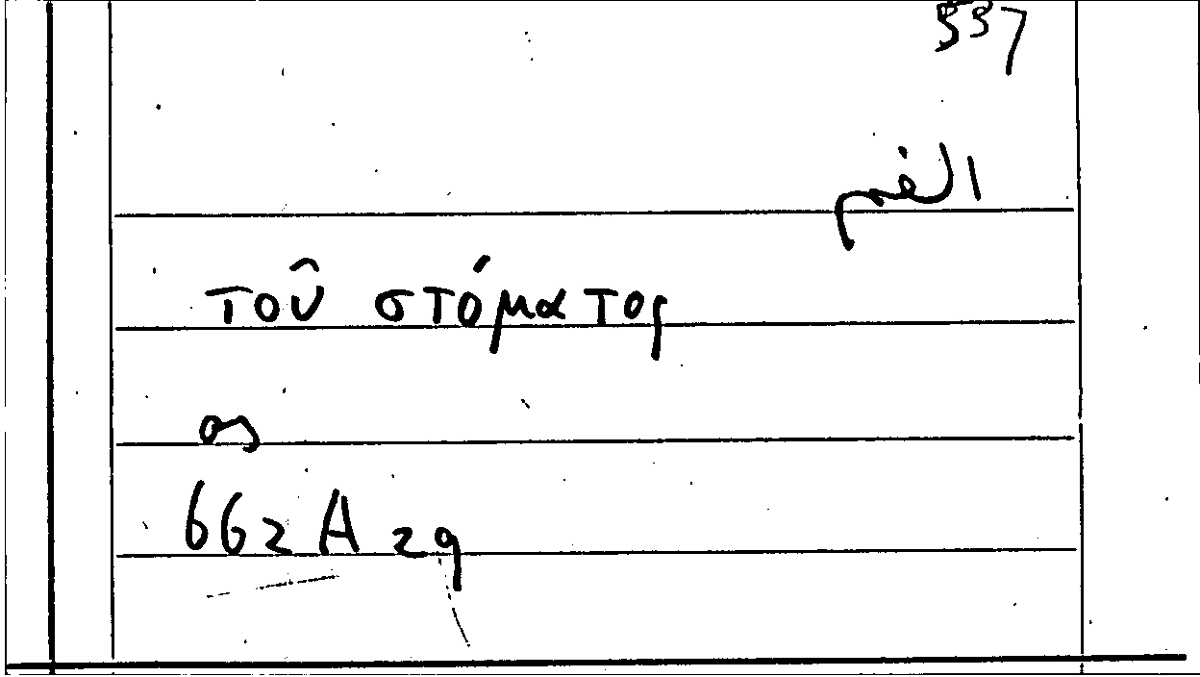 537
μέλι
τοῦ στόματος
os
662 A 29